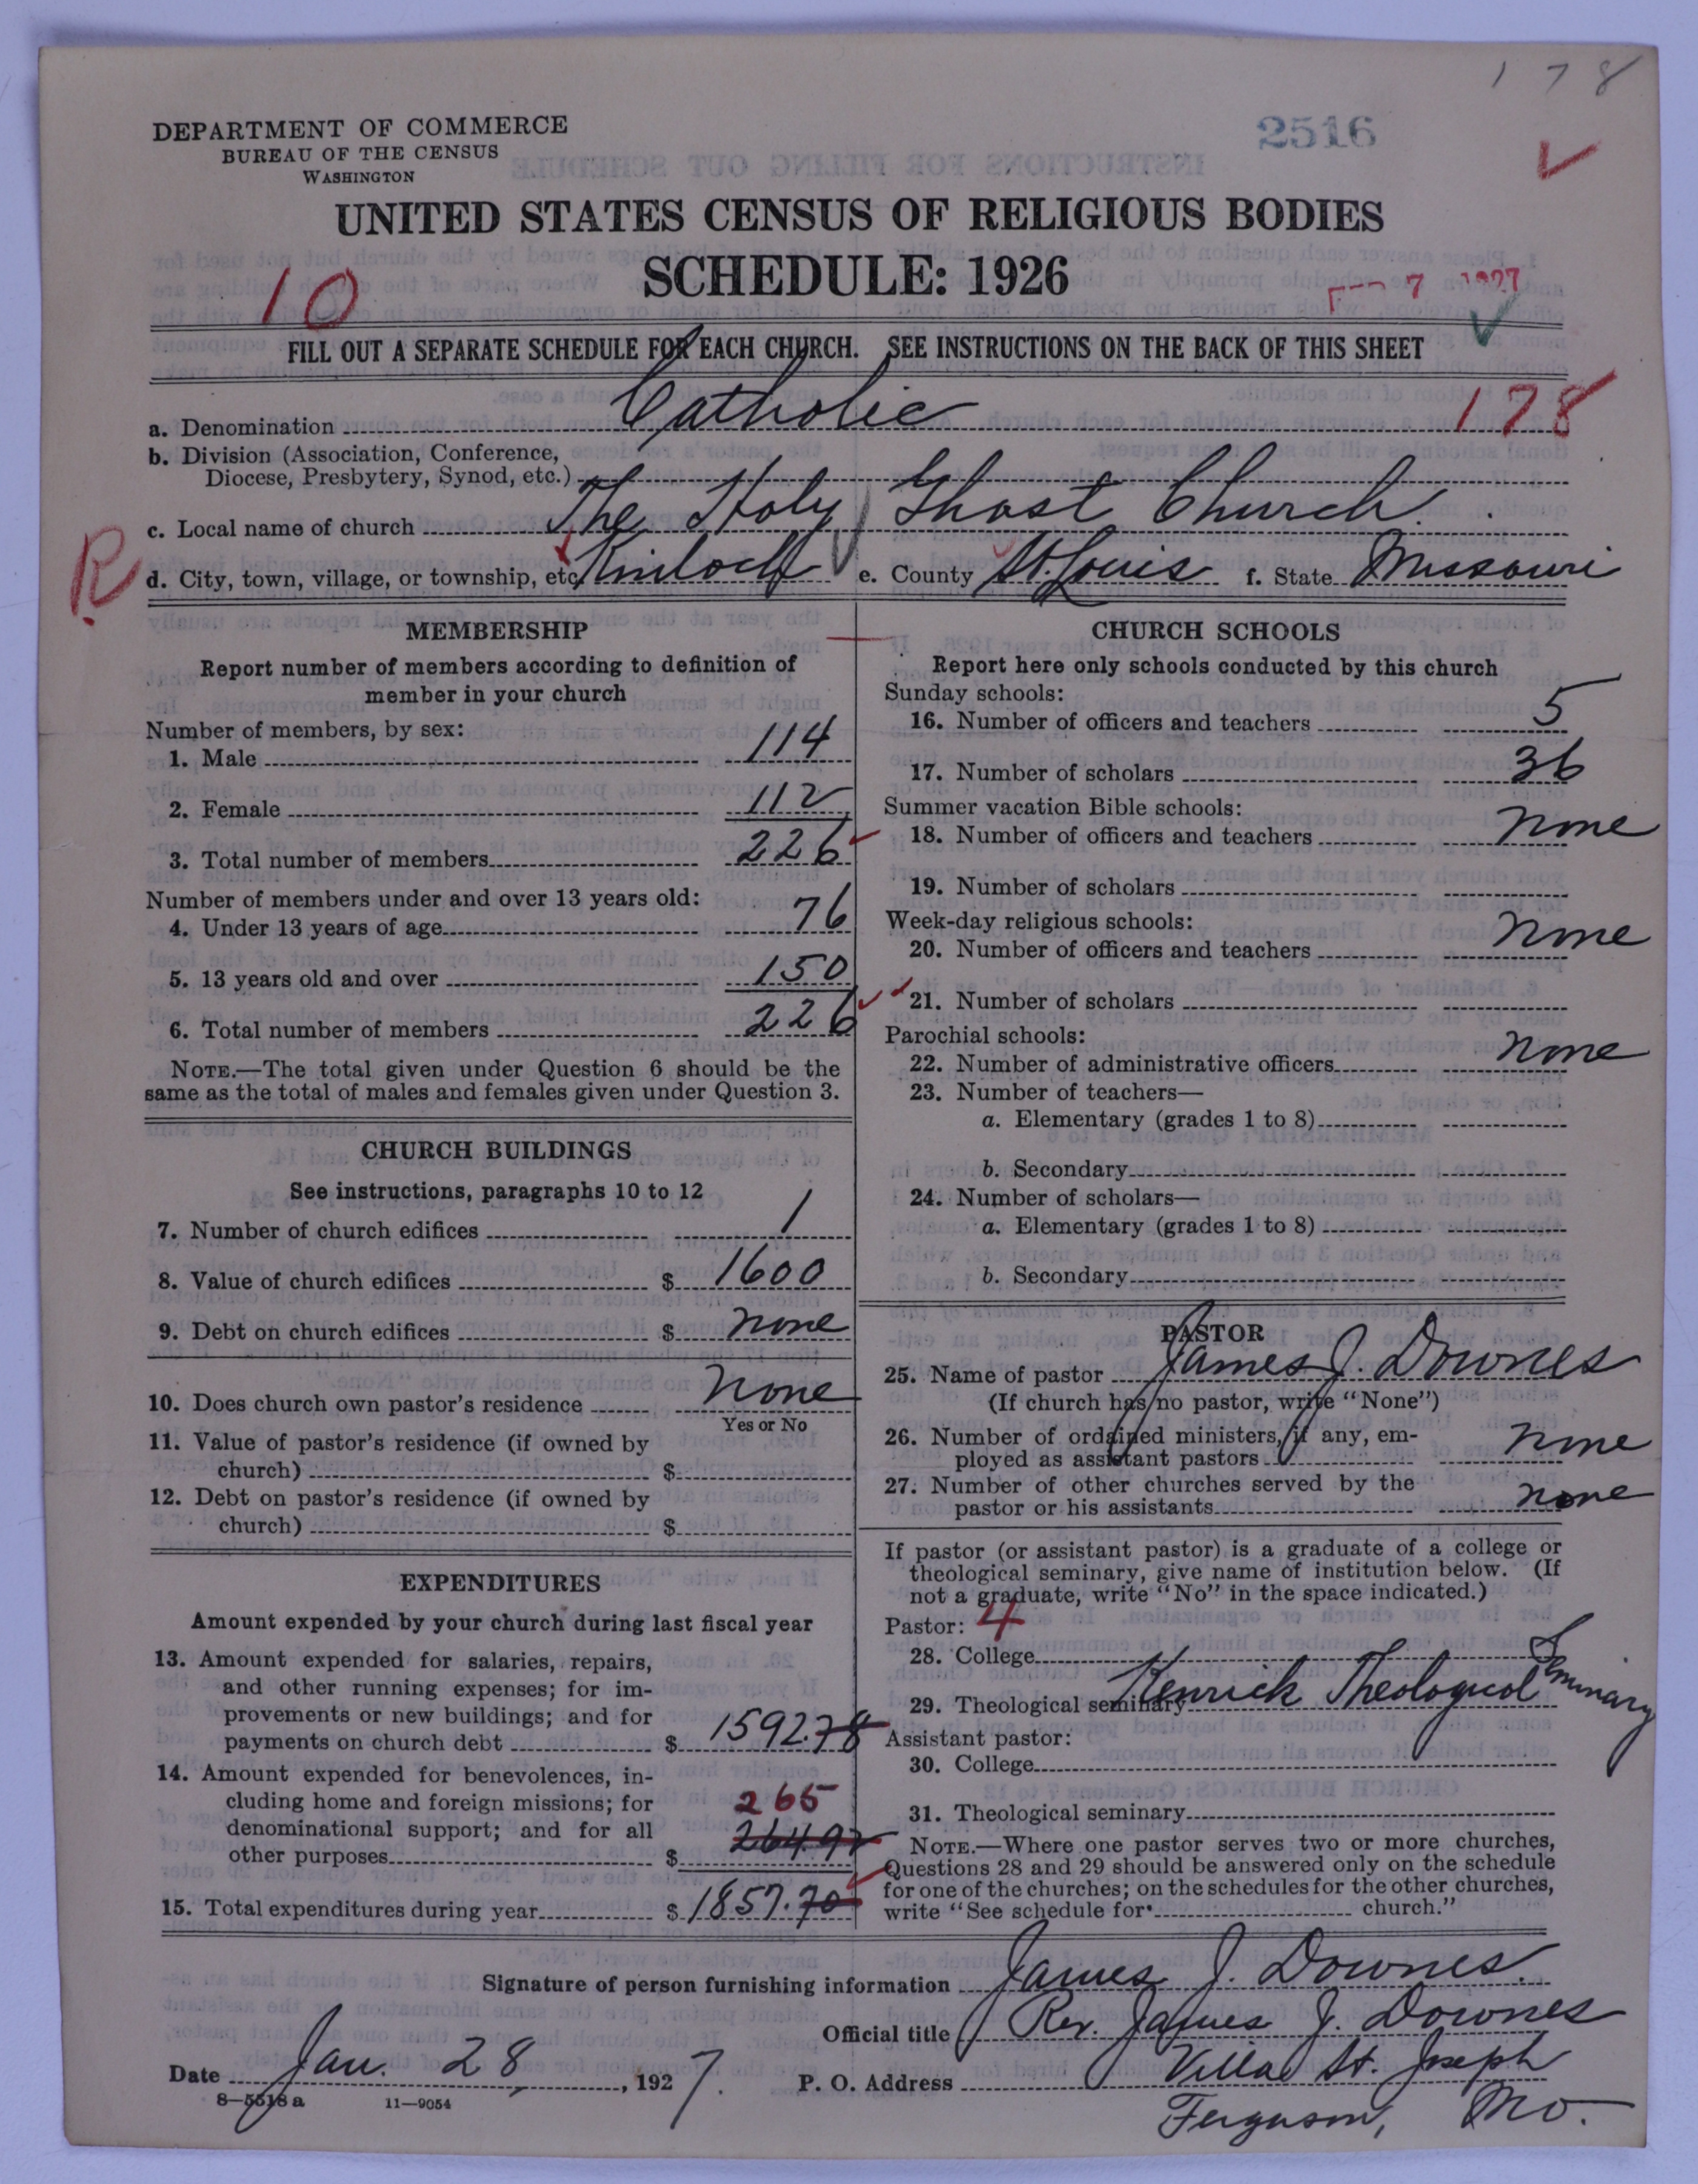 178
DEPARTMENT OF COMMERCE
BUREAU OF THE CENSUS
WASHINGTON
2516
UNITED STATES CENSUS OF RELIGIOUS BODIES
SCHEDULE: 1926
10
7 1927
FILL OUT A SEPARATE SCHEDULE FOR EACH CHURCH. SEE INSTRUCTIONS ON THE BACK OF THIS SHEET
a. Denomination Catholic 178
b. Division (Association, Conference,
Diocese, Presbytery, Synod, etc.)
c. Local name of church The Holy Ghost Church.
R.
d. City, town, village, or township, etc. Kinloch e. County St. Louis f. State Missouri
MEMBERSHIP
Report number of members according to definition of
member in your church
Number of members, by sex:
1. Male 114
2. Female 112
3. Total number of members 226
Number of members under and over 13 years old:
4. Under 13 years of age 76
5. 13 years old and over 150
6. Total number of members 226
NOTE.—The total given under Question 6 should be the
same as the total of males and females given under Question 3.
CHURCH BUILDINGS
See instructions, paragraphs 10 to 12
7. Number of church edifices 1
8. Value of church edifices $ 1600
9. Debt on church edifices $ none
10. Does church own pastor's residence none
Yes or No
11. Value of pastor's residence (if owned by
church) $
12. Debt on pastor's residence (if owned by
church) $
EXPENDITURES
Amount expended by your church during last fiscal year
13. Amount expended for salaries, repairs,
and other running expenses; for im-
provements or new buildings; and for
payments on church debt $ 1592.78
14. Amount expended for benevolences, in-
cluding home and foreign missions; for 265
denominational support; and for all 264.92
other purposes $
15. Total expenditures during year $ 1857.70
CHURCH SCHOOLS
Report here only schools conducted by this church
Sunday schools:
16. Number of officers and teachers 5
17. Number of scholars 36
Summer vacation Bible schools:
18. Number of officers and teachers none
19. Number of scholars
Week-day religious schools:
20. Number of officers and teachers none
21. Number of scholars
Parochial schools:
22. Number of administrative officers none
23. Number of teachers—
a. Elementary (grades 1 to 8)
b. Secondary
24. Number of scholars—
a. Elementary (grades 1 to 8)
b. Secondary
PASTOR
25. Name of pastor James J. Downes
(If church has no pastor, write "None")
26. Number of ordained ministers, if any, em-
ployed as assistant pastors none
27. Number of other churches served by the
pastor or his assistants none
If pastor (or assistant pastor) is a graduate of a college or
theological seminary, give name of institution below. (If
not a graduate, write "No" in the space indicated.)
Pastor: 4
28. College
29. Theological seminary Kenrick Theological Seminary
Assistant pastor:
30. College
31. Theological seminary
NOTE.—Where one pastor serves two or more churches,
Questions 28 and 29 should be answered only on the schedule
for one of the churches; on the schedules for the other churches,
write "See schedule for church."
Signature of person furnishing information James J. Downes.
Official title Rev. James J. Downes
Date Jan. 28, 1927. P. O. Address Villa St. Joseph
8—5518a 11—9054
Ferguson, Mo.